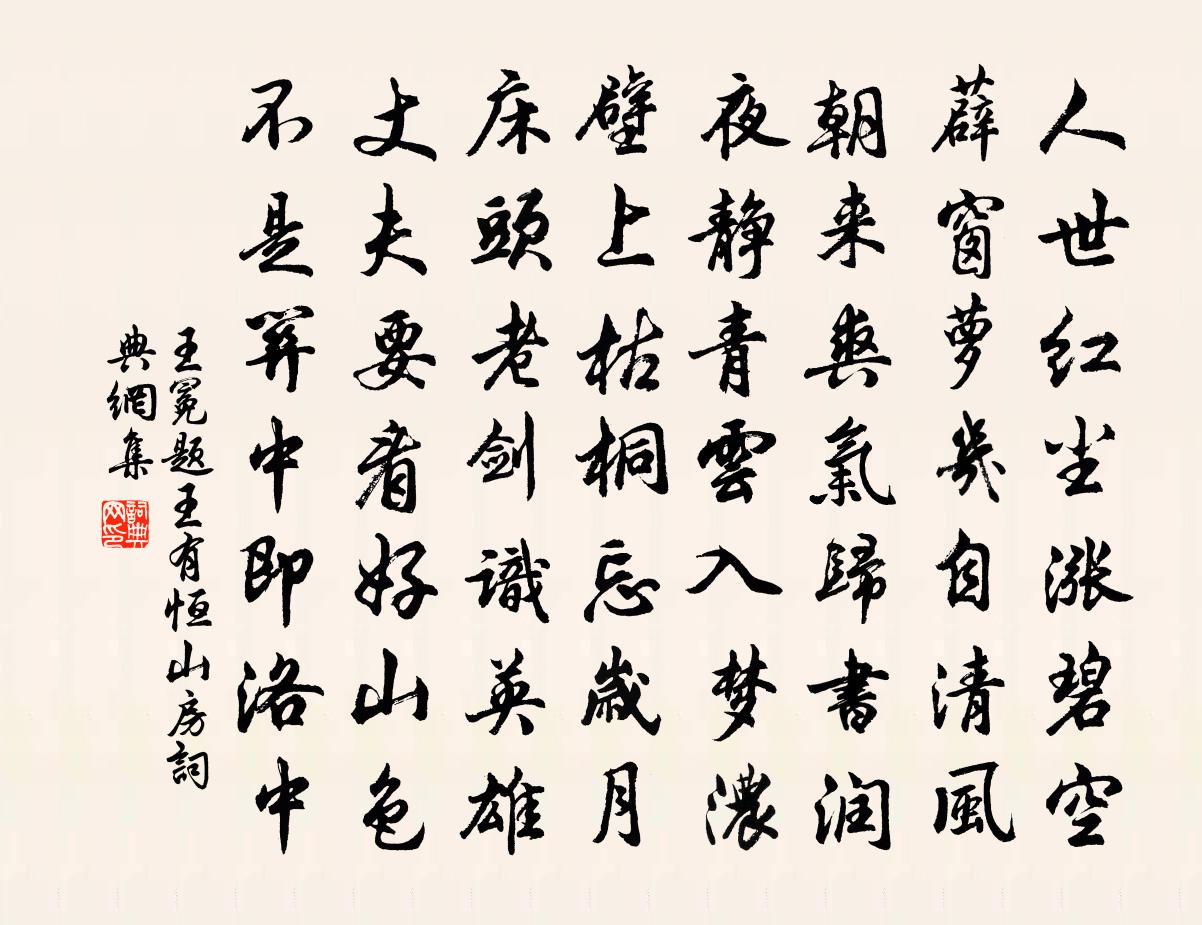 人世红尘涨碧空
薜窗萝幾自清風
朝来爽氣歸書润
夜静青雲入梦濃
壁上枯桐忘歲月
床頭老剑識英雄
丈夫要看好山色
不是关中即洛中
王冕题王有恒山房詞
典網集
詞典网印